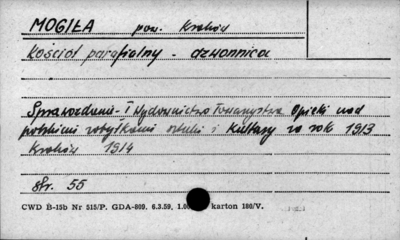 MOGIŁA pow. Kraków
Kościół parafialny - dzwonnica
Sprawozdanie i Wydawnictwo Towarzystwa Opieki nad
polskimi zabytkami sztuki i Kultury za rok 1913
Kraków 1914
str. 55
CWD B-15b Nr 515/P. GDA-809. 6.3.59, karton 180/V.